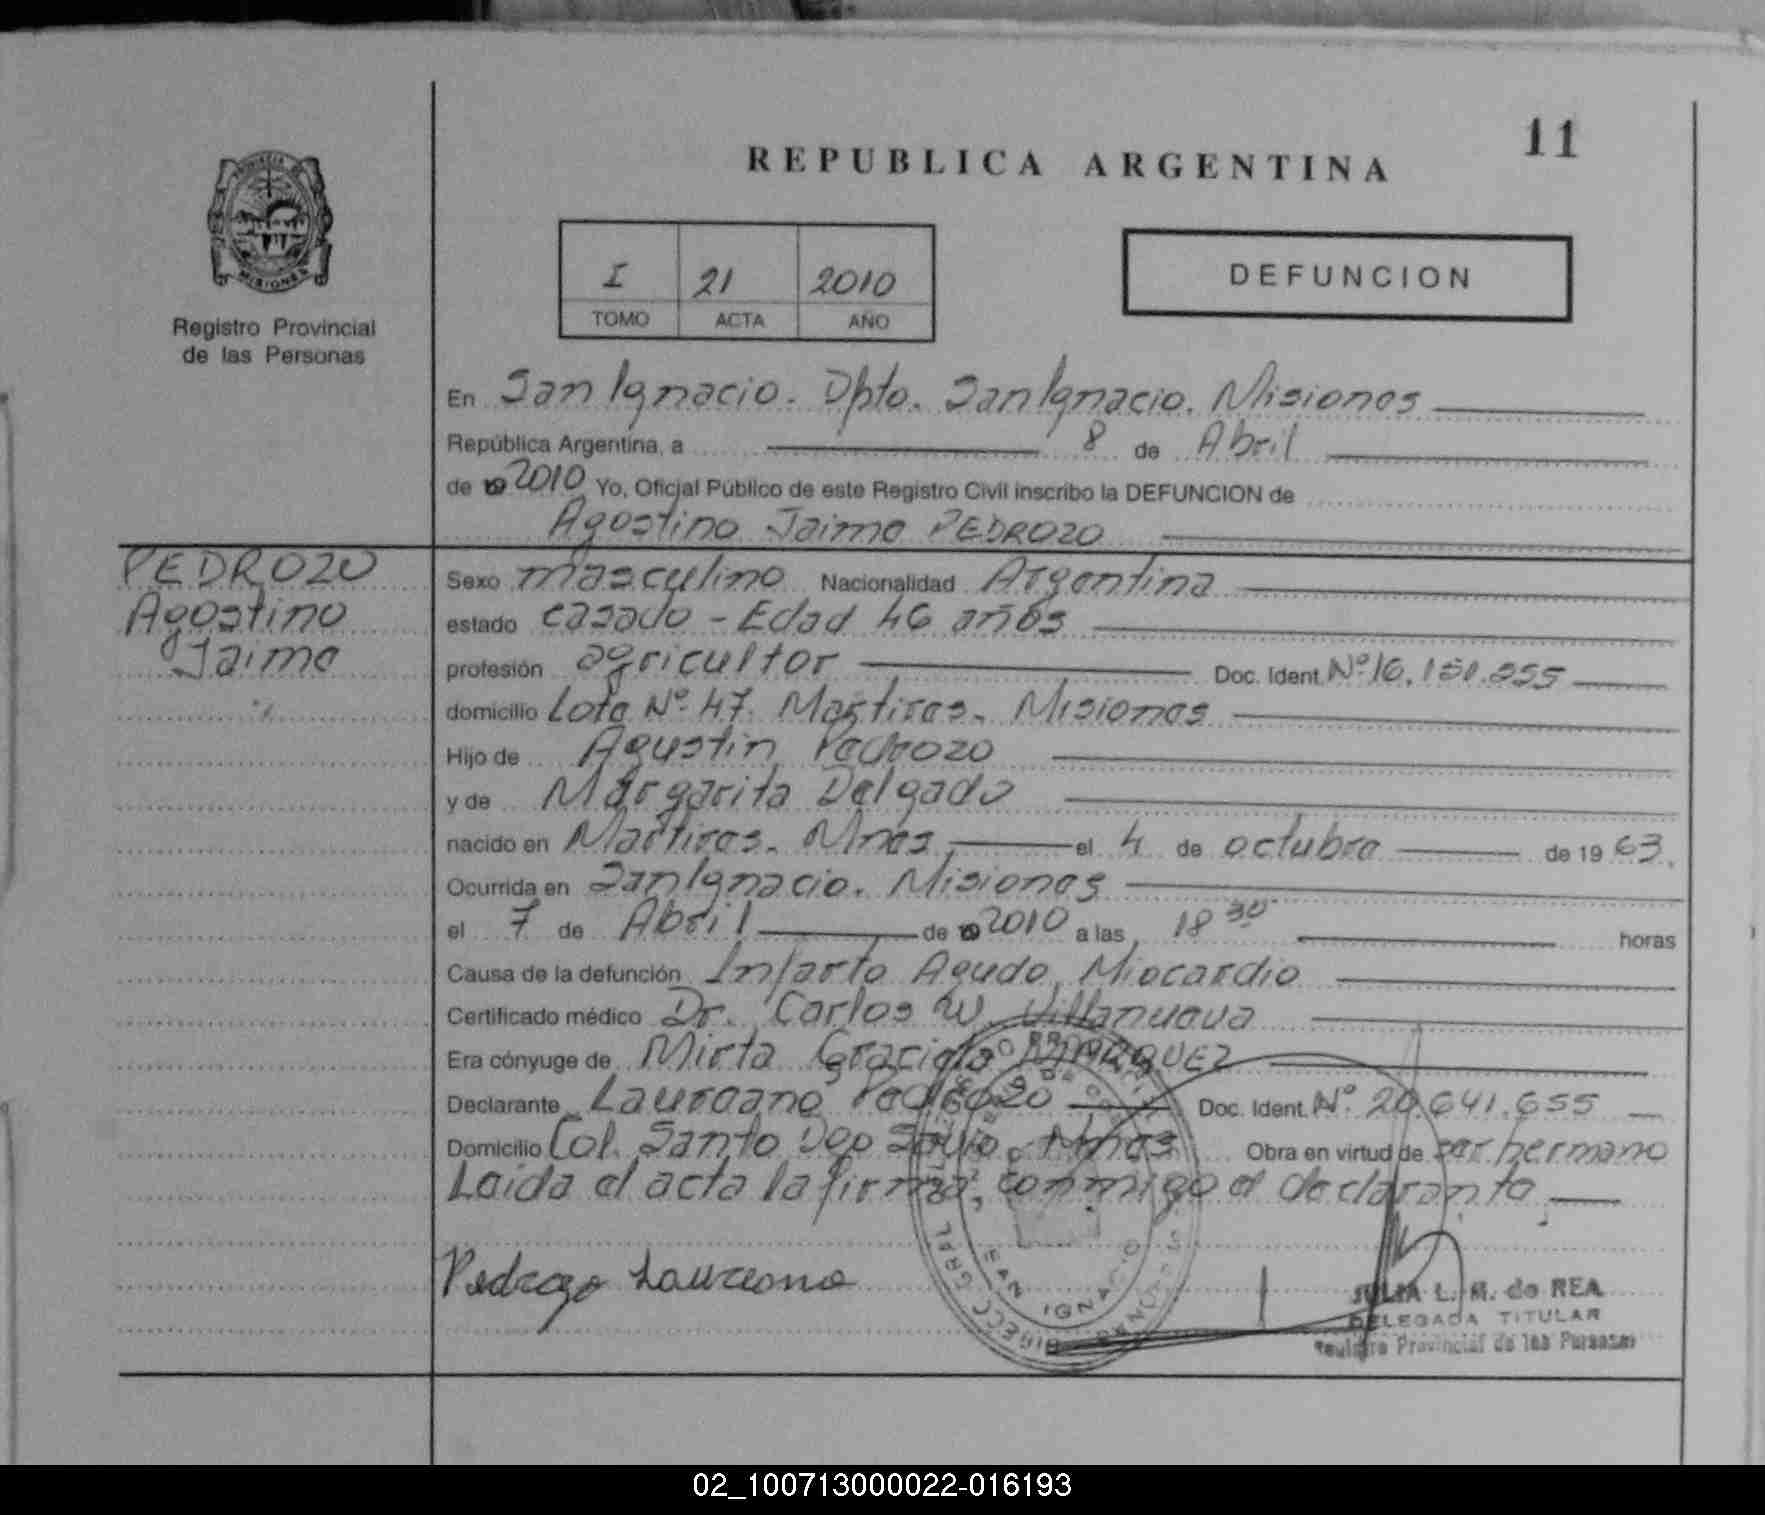 11
REPUBLICA ARGENTINA
PROVINCIA
MISIONES
Registro Provincial
de las Personas
I 21 2010
TOMO ACTA AÑO
DEFUNCION
En San Ignacio. Dpto. San Ignacio. Misiones
República Argentina, a 8 de Abril
de 2010 Yo, Oficial Público de este Registro Civil inscribo la DEFUNCION de
Agostino Jaime PEDROZO
PEDROZO
Agostino
Jaime
Sexo masculino Nacionalidad Argentina
estado casado - Edad 46 años
profesión agricultor Doc. Ident. Nº 16.151.255
domicilio Lote Nº 47. Martires. Misiones
Hijo de Agustin Pedrozo
y de Margarita Delgado
nacido en Martires. Mnes el 4 de octubre de 1963.
Ocurrida en San Ignacio. Misiones
el 7 de Abril de 2010 a las 18 30 horas
Causa de la defunción Infarto Agudo Miocardio
Certificado médico Dr. Carlos W. Villanueva
Era cónyuge de Mirta Graciela MARQUEZ
Declarante Laureano Pedrozo Doc. Ident. Nº 20.641.655
Domicilio Col. Santo Dgo Savio Mnes Obra en virtud de ser hermano
Leida el acta la firma, conmigo el declarante
Pedrozo Laureano
SAN IGNACIO
JULIA L. M. de REA
DELEGADA TITULAR
Registro Provincial de las Personas
02_100713000022-016193